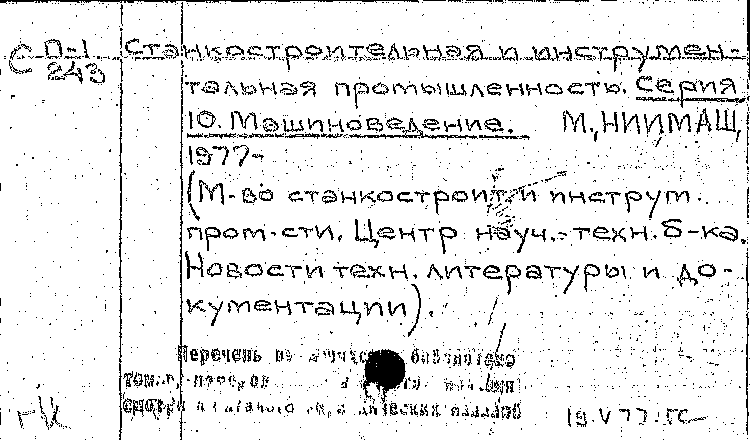 С П-1 Станкостроительная и инструмен-
243
тальная промышленность. Серия
10. Машиноведение. М., НИИМАШ,
1977-
(М-во станкостроит. и инструм.
пром-сти. Центр науч.-техн. б-ка.
Новости техн. литературы и до-
кументации).
Перечень
19.V 77